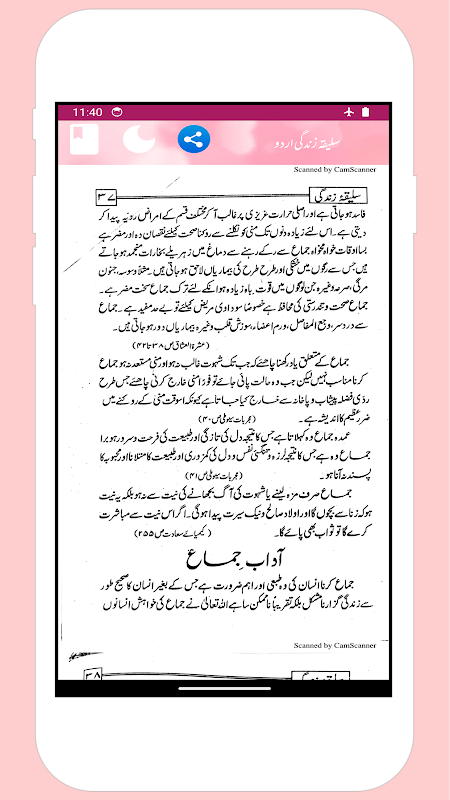 11:40
سلیقہ زندگی اردو
Scanned by CamScanner
سلیقۂ زندگی ۳۷
فاسد ہو جاتی ہے اور اصلی حرارت عزیزی پر غالب آ کر مختلف قسم کے امراض ردیہ پیدا کر
دیتی ہے۔ اس لئے زیادہ دنوں تک منی کو نکلنے سے روکنا صحت کیلئے نقصان دہ اور مضر ہے
بسا اوقات خواہ مخواہ جماع سے رکے رہنے سے دماغ میں زہریلے بخارات منجمد ہو جاتے
ہیں جس سے رگوں میں خشکی اور طرح طرح کی بیماریاں لاحق ہو جاتی ہیں۔ مثلاً وسوسہ، جنون
مرگی، صرعہ وغیرہ جن لوگوں میں قوت باہ زیادہ ہو انکے لئے ترک جماع سخت مضر ہے۔
جماع صحت و تندرستی کی محافظ ہے خصوصًا سوداوی مریض کیلئے تو بے حد مفید ہے۔ جماع
سے درد سر، وجع المفاصل، ورم اعضاء، سوزش قلب وغیرہ بیماریاں دور ہو جاتی ہیں۔
(عشرۃ العشاق ص ۳۸ تا ۴۲)
جماع کے متعلق یاد رکھنا چاہئے کہ جب تک شہوت غالب نہ ہو اور منی مستعد نہ ہو جماع
کرنا مناسب نہیں لیکن جب وہ حالت پائی جائے تو فوراً منی خارج کرنی چاہئے جس طرح
ردّی فضلہ پیشاب و پاخانہ سے خارج کیا جاتا ہے کیونکہ اسوقت منی کے روکنے میں
ضرر عظیم کا اندیشہ ہے۔ (مجربات سیوطی ص ۴۰)
عمدہ جماع وہ کہلاتا ہے جس کا نتیجہ دل کی تازگی اور طبیعت کی فرحت و سرور ہو برا
جماع وہ ہے جس کا نتیجہ لرزہ و تنگئی نفس و دل کی کمزوری اور طبیعت کا متلانا اور محبوبہ کا
پسند نہ آنا ہو۔ (مجربات سیوطی ص ۴۱)
جماع صرف مزہ لینے یا شہوت کی آگ بجھانے کی نیت سے نہ ہو بلکہ یہ نیت
ہو کہ زنا سے بچوں گا اور اولاد صالح و نیک سیرت پیدا ہوگی۔ اگر اس نیت سے مباشرت
کرے گا تو ثواب بھی پائے گا۔ (کیمیائے سعادت ص ۲۵۵)
آداب جماع
جماع کرنا انسان کی وہ طبعی اور اہم ضرورت ہے جس کے بغیر انسان کا صحیح طور
سے زندگی گزارنا مشکل بلکہ تقریباً نا ممکن سا ہے اللہ تعالیٰ نے جماع کی خواہش انسانوں
Scanned by CamScanner
۳۸